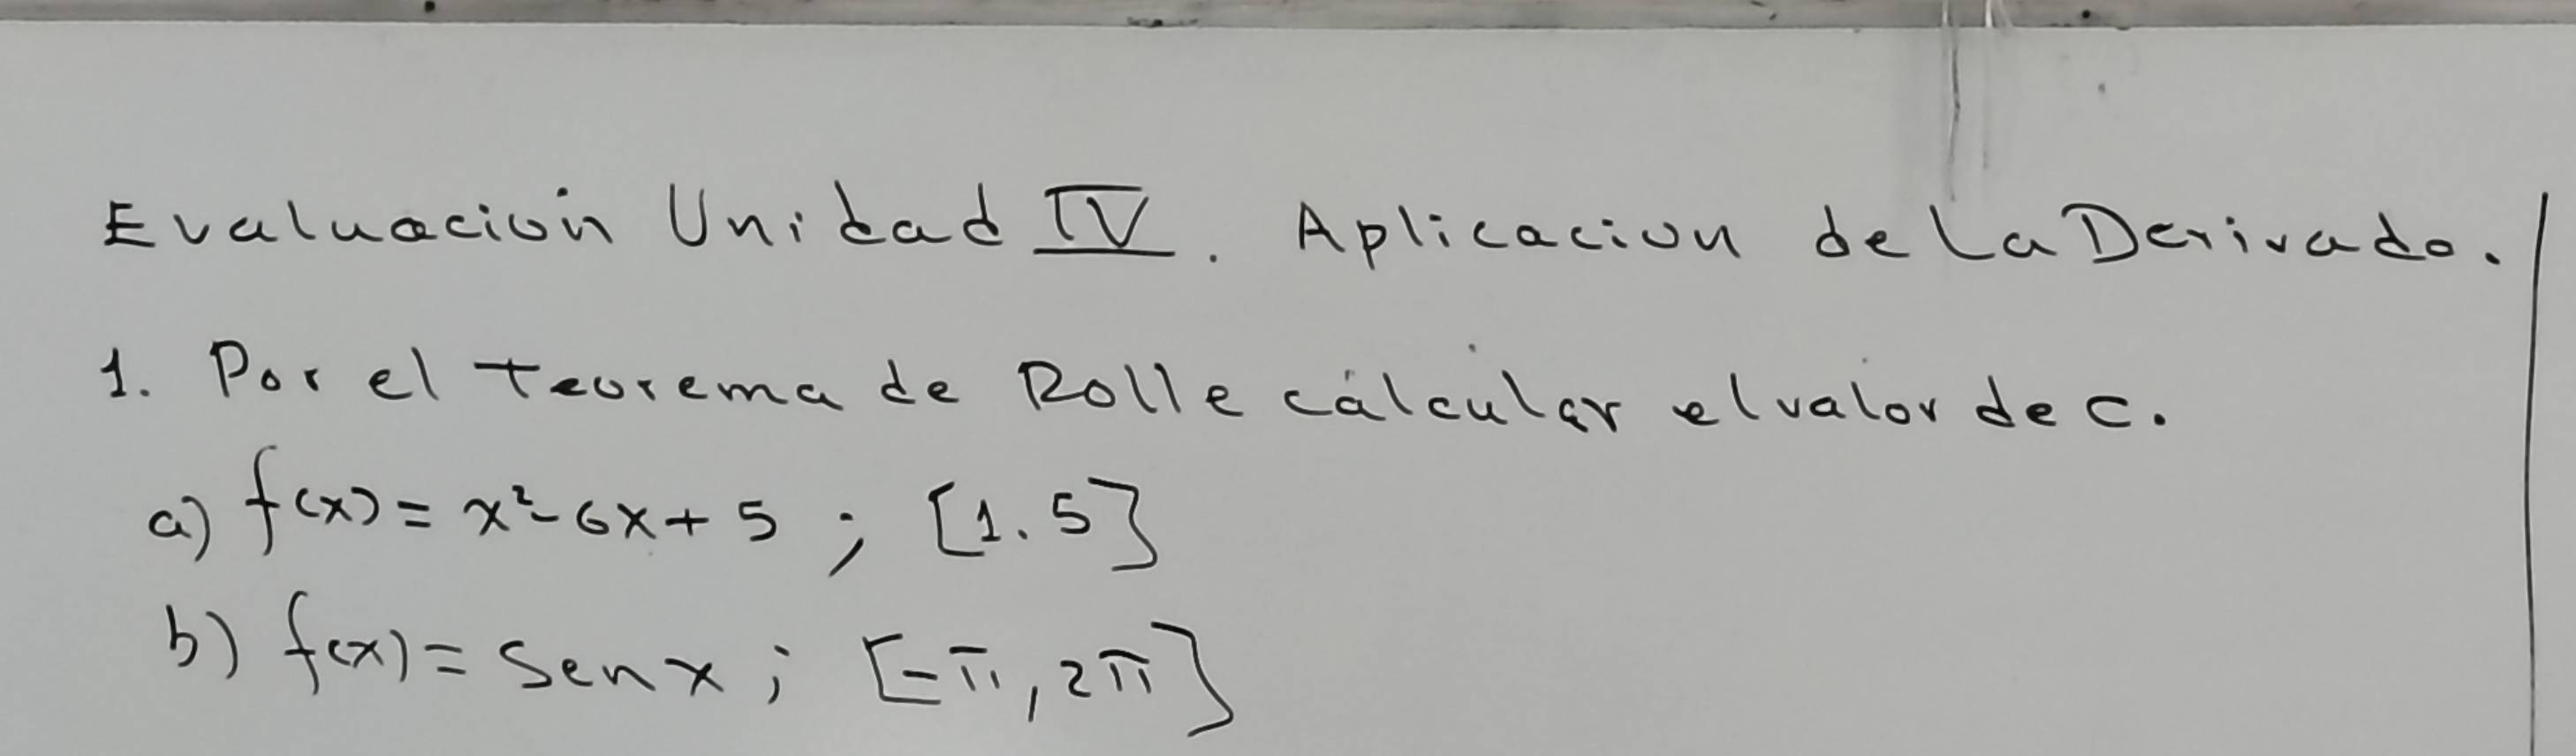 Evaluación Unidad IV. Aplicacion de La Derivada.
1. Por el teorema de Rolle cálcular el valor de c.
a) f(x) = x²-6x+5 ; [1.5]
b) f(x) = Senx ; [-π, 2π]